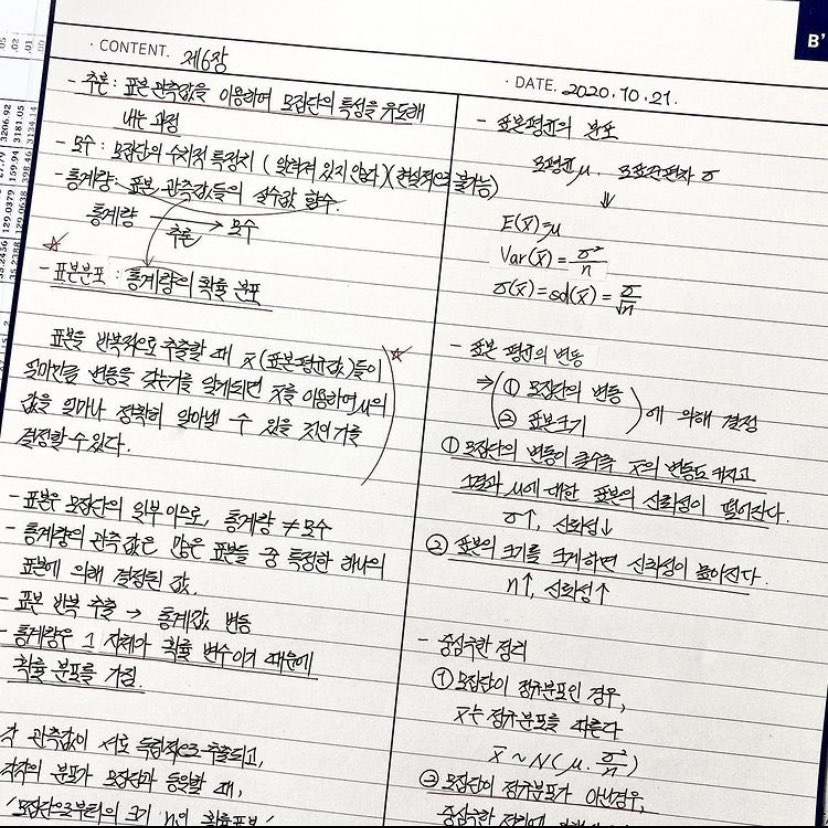 B'
CONTENT. 제6장
DATE. 2020.10.21.
- 추론 : 표본 관측값을 이용하여 모집단의 특성을 유도해
내는 과정
- 모수 : 모집단의 수치적 특정치 ( 알려져 있지 않다 ) ( 현실적으로 불가능)
- 통계량: 표본 관측값들의 실수값 함수.
통계량 → 모수
추론
☆
- 표본분포 : 통계량의 확률 분포
표본을 반복적으로 추출할 때 x̄ (표본평균값)들이 ☆
얼마만큼 변동을 갖는가를 알게되면 x̄를 이용하여 μ의
값을 얼마나 정확히 알아낼 수 있을 것인가를
결정할 수 있다.
- 표본은 모집단의 일부 이므로, 통계량 ≠ 모수
- 통계량의 관측 값은 많은 표본들 중 특정한 하나의
표본에 의해 결정된 값.
- 표본 반복 추출 → 통계값 변동
- 통계량은 그 자체가 확률 변수이기 때문에
확률 분포를 가짐.
각 관측값이 서로 독립적으로 추출되고,
각각의 분포가 모집단과 동일할 때,
'모집단으로부터의 크기 n의 확률표본'
- 표본평균의 분포
모평균 μ. 모표준편차 σ
⇓
E(x̄)=μ
Var(x̄) = σ²/n
σ(x̄) = sd(x̄) = σ/√n
- 표본 평균의 변동
⇒ ( ① 모집단의 변동
② 표본크기 ) 에 의해 결정
① 모집단의 변동이 클수록 x̄의 변동도 커지고
그결과 μ에 대한 표본의 신뢰성이 떨어진다.
σ↑, 신뢰성↓
② 표본의 크기를 크게하면 신뢰성이 높아진다.
n↑, 신뢰성↑
- 중심극한 정리
① 모집단이 정규분포인 경우,
x̄는 정규분포를 따른다
x̄ ~ N(μ. σ²/n)
② 모집단이 정규분포가 아닌경우,
중심극한 정리에
3206.92
3181.05
3134.14
159.94
398.46
129.0379
129.0638
35.2456
35.2388
.05
.02
.01